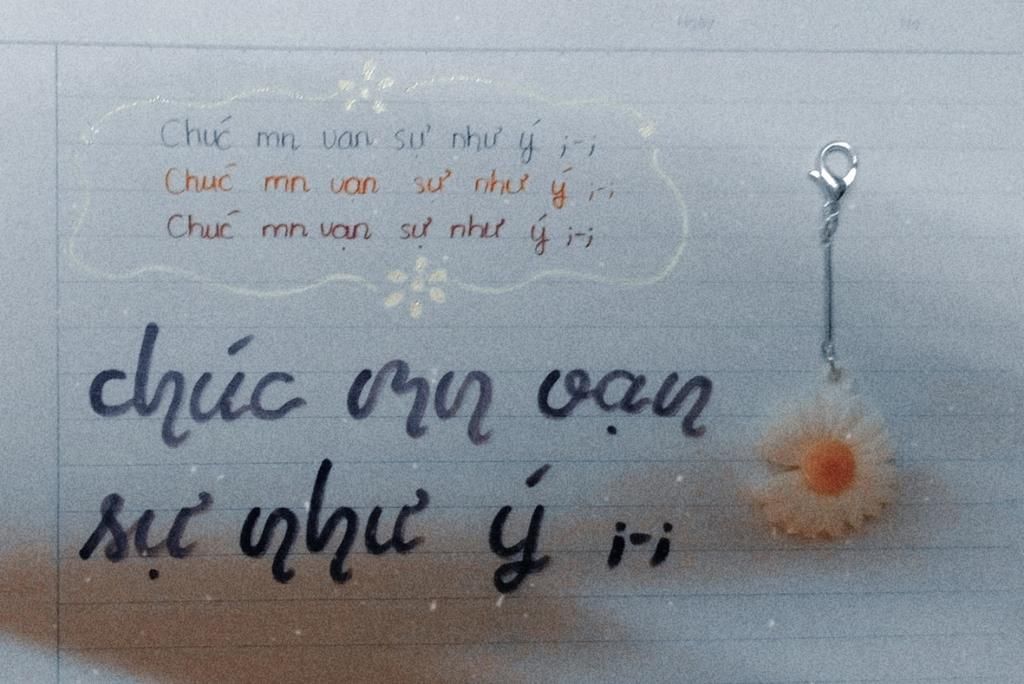 Chúc mn vạn sự như ý ;-;
Chúc mn vạn sự như ý ;-;
Chúc mn vạn sự như ý ;-;
chúc mn vạn
sự như ý ;-;